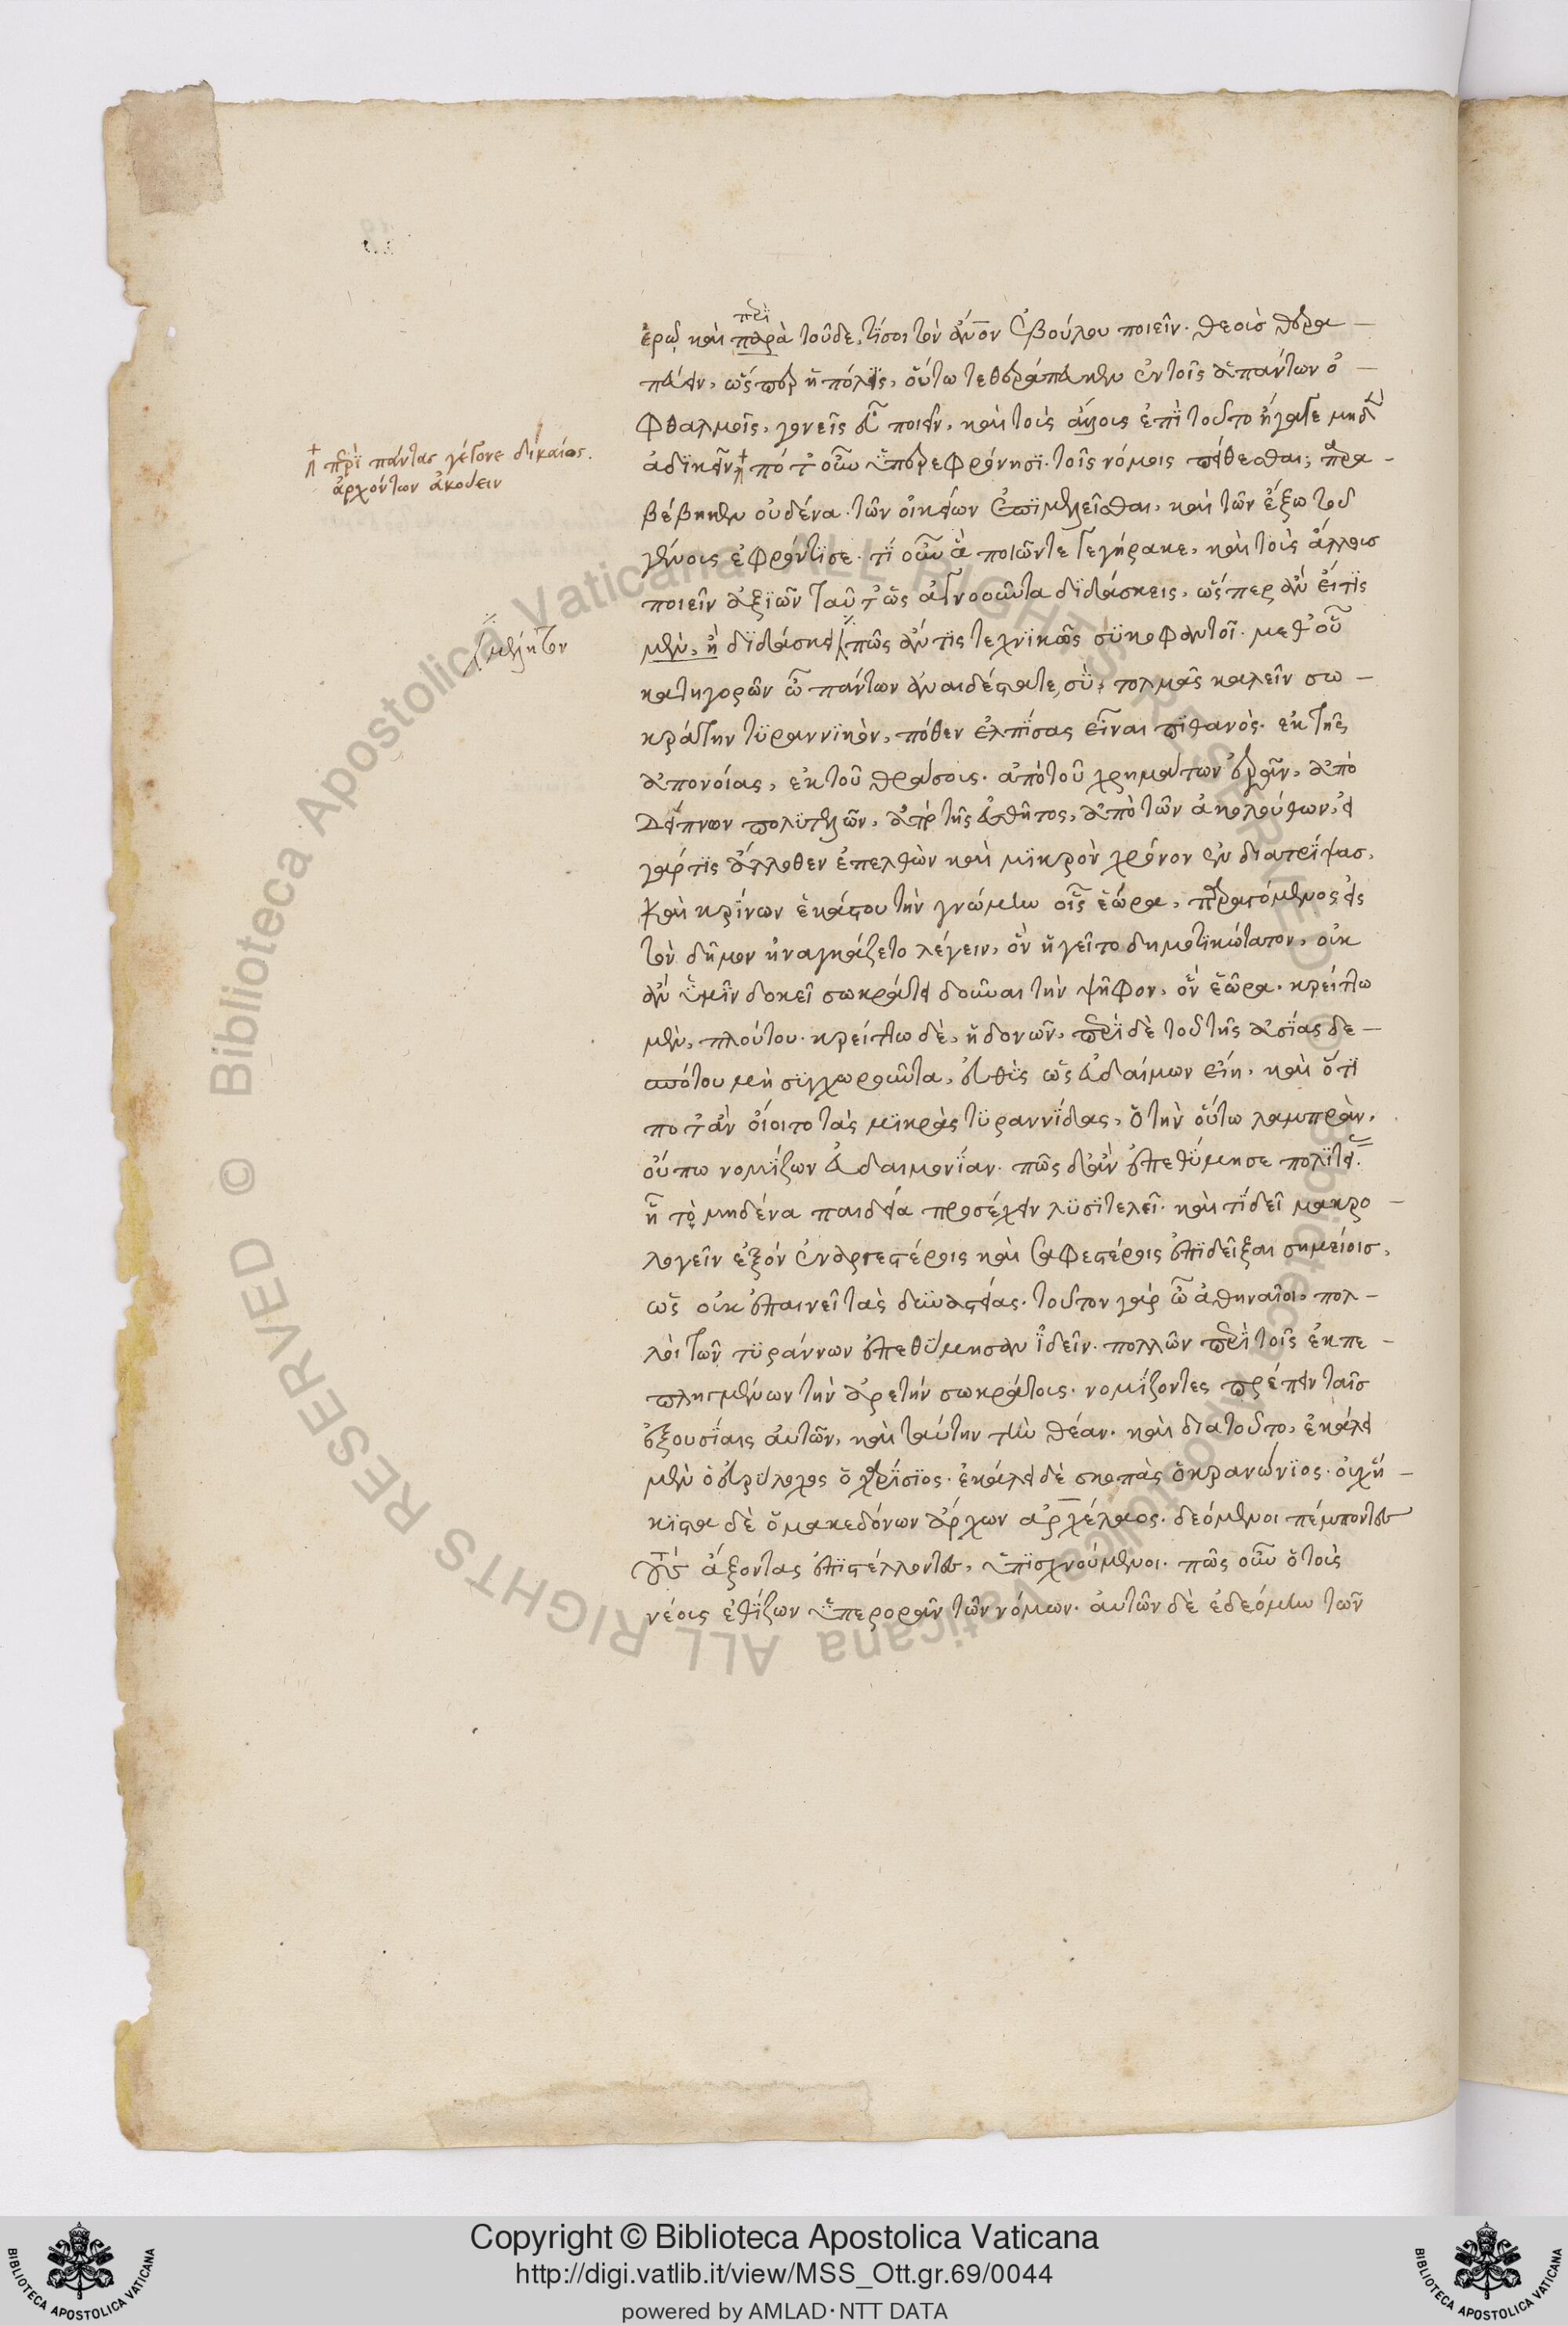 πὲρϊ
ἐρῶ, καὶ παρὰ τοῦδε, τίσοι τὸν ἄνον ἐβούλου ποιεῖν. θεοὺσ θερα –
πεύειν, ὥσπερ ἡ πόλις, οὕτω τεθεράπευκεν ἐν τοῖς ἁπάντων ὀ –
φθαλμοῖς, γονεῖς εὖ ποιεῖν, καὶ τοὺς ἄλλους ἐπὶ τοῦτο ἤγαγε μηδὲν
+ περὶ πάντας γέγονε δίκαιος.
ἀρχόντων ἀκούειν
ἀδικεῖν, + πότ' οὖν ὑπερεφρόνησε. τοῖς νόμοις πείθεσθαι; παρα –
βέβηκεν οὐδένα. τῶν οἰκείων ἐπιμελεῖσθαι, καὶ τῶν ἔξω τοῦ
γένους ἐφρόντισε. τί οὖν ἃ ποιῶν τε γεγήρακε, καὶ τοὺς ἄλλουσ
ποιεῖν ἀξιῶν ταῦτ' ὡς ἀγνοοῦντα διδάσκεις, ὥσπερ ἂν εἴ τις
μέλητον
μὲν, ἢ διδάσκει πῶς ἄν τις τεχνικῶς συκοφαντοῖ. μεθ' οὗ
κατηγορῶν ὦ πάντων ἀναιδέστατε, σὺ, τολμᾷς καλεῖν σω –
κράτην τυραννικὸν, πόθεν ἐλπίσας εἶναι πιθανὸς. ἐκ τῆς
ἀπονοίας, ἐκ τοῦ θράσους. ἀπὸ τοῦ χρημάτων ἐρᾶν, ἀπὸ
δείπνων πολυτελῶν, ἀπὸ τῆς ἐσθῆτος, ἀπὸ τῶν ἀκολούθων, εἰ
γάρ τις ἄλλοθεν ἐπελθὼν καὶ μικρὸν χρόνον ἐνδιατρίψασ,
καὶ κρίνων ἑκάστου τὴν γνώμην οἷς ἑώρα, παραγόμενος εἰς
τὸν δῆμον ἠναγκάζετο λέγειν, ὃν ἡγεῖτο δημοτικώτατον, οὐκ
ἂν ὑμῖν δοκεῖ σωκράτει δοῦναι τὴν ψῆφον, ὃν ἑώρα. κρείττω
μὲν, πλούτου. κρείττω δὲ, ἡδονῶν, περὶ δὲ τοῦ τῆς ἀσίας δε –
σπότου μὴ συγχωροῦντα, εὐθὺς ὡς εὐδαίμων εἴη, καὶ ὅτι
ποτ' ἂν οἴοιτο τὰς μικρὰς τυραννίδας, ὁ τὴν οὕτω λαμπρὰν,
οὔπω νομίζων εὐδαιμονίαν. πῶς δ' ἂν ἐπεθύμησε πολιτείας
ᾗ τὸ μηδένα παιδείᾳ προσέχειν λυσιτελεῖ. καὶ τί δεῖ μακρο –
λογεῖν ἐξὸν ἐναργεστέροις καὶ σαφεστέροις ἐπιδεῖξαι σημείοισ,
ὡς οὐκ ἐπαινεῖ τὰς δυναστείας. τοῦτον γὰρ ὦ ἀθηναῖοι, πολ –
λοὶ τῶν τυράννων ἐπεθύμησαν ἰδεῖν. πολλῶν περὶ τοῖς ἐκπε –
πληγμένων τὴν ἀρετὴν σωκράτους. νομίζοντες πρέπειν ταῖσ
ἐξουσίαις αὐτῶν, καὶ ταύτην τὴν θέαν. καὶ διατοῦτο, ἐκάλει
μὲν ὁ εὐρύλοχος ὁ χαρίσιος. ἐκάλει δὲ σκοπὰς ὁ κρανώνιος. οὐχ ἥ –
κιστα δὲ ὁ μακεδόνων ἄρχων ἀρχέλαος. δεόμενοι πέμποντες
τοὺς ἄξοντας ἐπιστέλλοντες, ὑπισχνούμενοι. πῶς οὖν ὁ τοὺς
νέους ἐθίζων ὑπερορᾶν τῶν νόμων. αὐτῶν δὲ ἐδεόμην τῶν
Copyright © Biblioteca Apostolica Vaticana
http://digi.vatlib.it/view/MSS_Ott.gr.69/0044
powered by AMLAD · NTT DATA